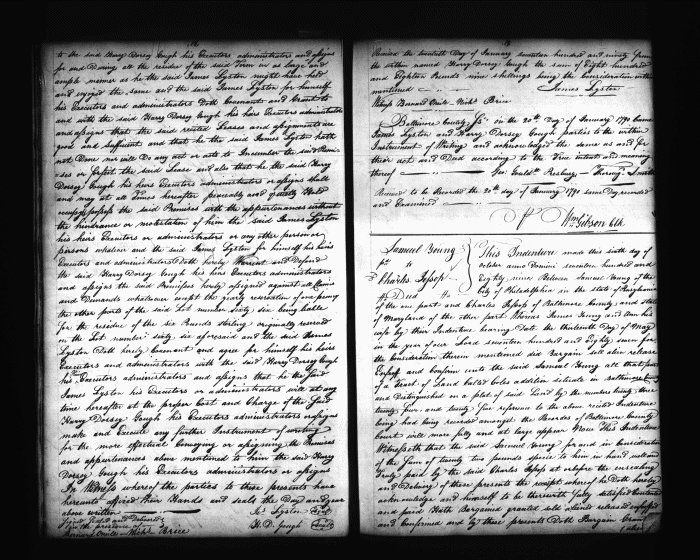 to the said Harry Dorsey Gough his Executors administrators and assigns
for and During all the residue of the said Term in as large and
ample manner as he the said James Lyston might have held
and enjoyed the same and the said James Lyston for himself
his Executors and administrators Doth Covenant and Grant to
and with the said Harry Dorsey Gough his heirs Executors administrators
and assigns that the said recited Leases and assignments are
good and sufficient and that he the said James Lyston hath
not Done nor will Do any act or acts to Incumber the said
or forfeit the said Lease and also that he the said Harry
Dorsey Gough his heirs Executors administrators or assigns shall
and may at all Times hereafter peaceably and quietly Hold
the said Premises with the appurtenances without
the hindrance or molestation of him the said James Lyston
his heirs Executors or administrators or any other person or
persons whatever and the said James Lyston for himself his heirs
Executors and administrators Doth hereby Warrant and Defend
the said Harry Dorsey Gough his heirs Executors administrators
and assigns the said Premises hereby assigned against all Claims
and Demands whatsoever except the yearly reservation of one penny
the other parts of the said Lot number sixty six being liable
for the residue of the six Pounds sterling originally reserved
on the Lot number sixty six aforesaid and the said James
Lyston Doth hereby Covenant and agree for himself his heirs
Executors and administrators with the said Harry Dorsey Gough
his Executors administrators and assigns that he the said
James Lyston his Executors or administrators will at any
time hereafter at the proper Cost and Charge of the said
Harry Dorsey Gough his Executors administrators or assigns
make and Execute any further Instrument of writing
for the more effectual Conveying or assigning the Premises
and appurtenances above mentioned to him the said Harry
Dorsey Gough his Executors administrators or assigns
In Witness whereof the parties to these presents have
hereunto affixed their Hands and seals the Day and year
above written
Jas. Lyston Seal
Signed sealed and Delivered
in the presence of
H. D. Gough Seal
Michl. Brice
Received the twentieth Day of January seventeen hundred and ninety from
the within named Harry Dorsey Gough the sum of Eight hundred
and Eighteen Pounds nine shillings being the Consideration within
mentioned
James Lyston
Michl. Brice
Baltimore County Ss. on the 20th Day of January 1790 Came
James Lyston and Harry Dorsey Gough parties to the within
Instrument of Writing and acknowledged the same as and for
their act and Deed according to the True intents and meaning
thereof Geo. Gouldh. Presbury
Received to be Recorded the 20th day of January 1790 same Day recorded
and Examined
Wm. Gibson Clk
Samuel Young
to
Charles Jessop
Deed
This Indenture made this sixth day of
october anno Domini seventeen hundred and
Eighty nine Between Samuel Young of the
City of Philadelphia in the state of Pennsylvania
of the one part and Charles Jessop of Baltimore County and state
of Maryland of the other part Whereas James Young and Ann his
wife by their Indenture bearing Date the thirteenth Day of May
in the year of our Lord seventeen hundred and Eighty seven for
the Consideration therein mentioned did Bargain sell alien release
Enfeoff and Confirm unto the said Samuel Young all that part
of a tract of Land Called Coles addition situate in Baltimore
and Distinguished on a plat of said Land by the numbers
four and seventy five reference to the above recited Indenture
being had being recorded amongst the Records of Baltimore County
Court will more fully and at large appear Now This Indenture
Witnesseth that the said Samuel Young for and in Consideration
of the sum of twenty two pounds specie to him in hand
Truly paid by the said Charles Jessop at or before the ensealing
and Delivery of these presents the receipt whereof he Doth hereby
acknowledge and himself to be therewith fully satisfied Contented
and paid Hath Bargained granted sold aliened released enfeoffed
and Confirmed and by these presents Doth Bargain Grant